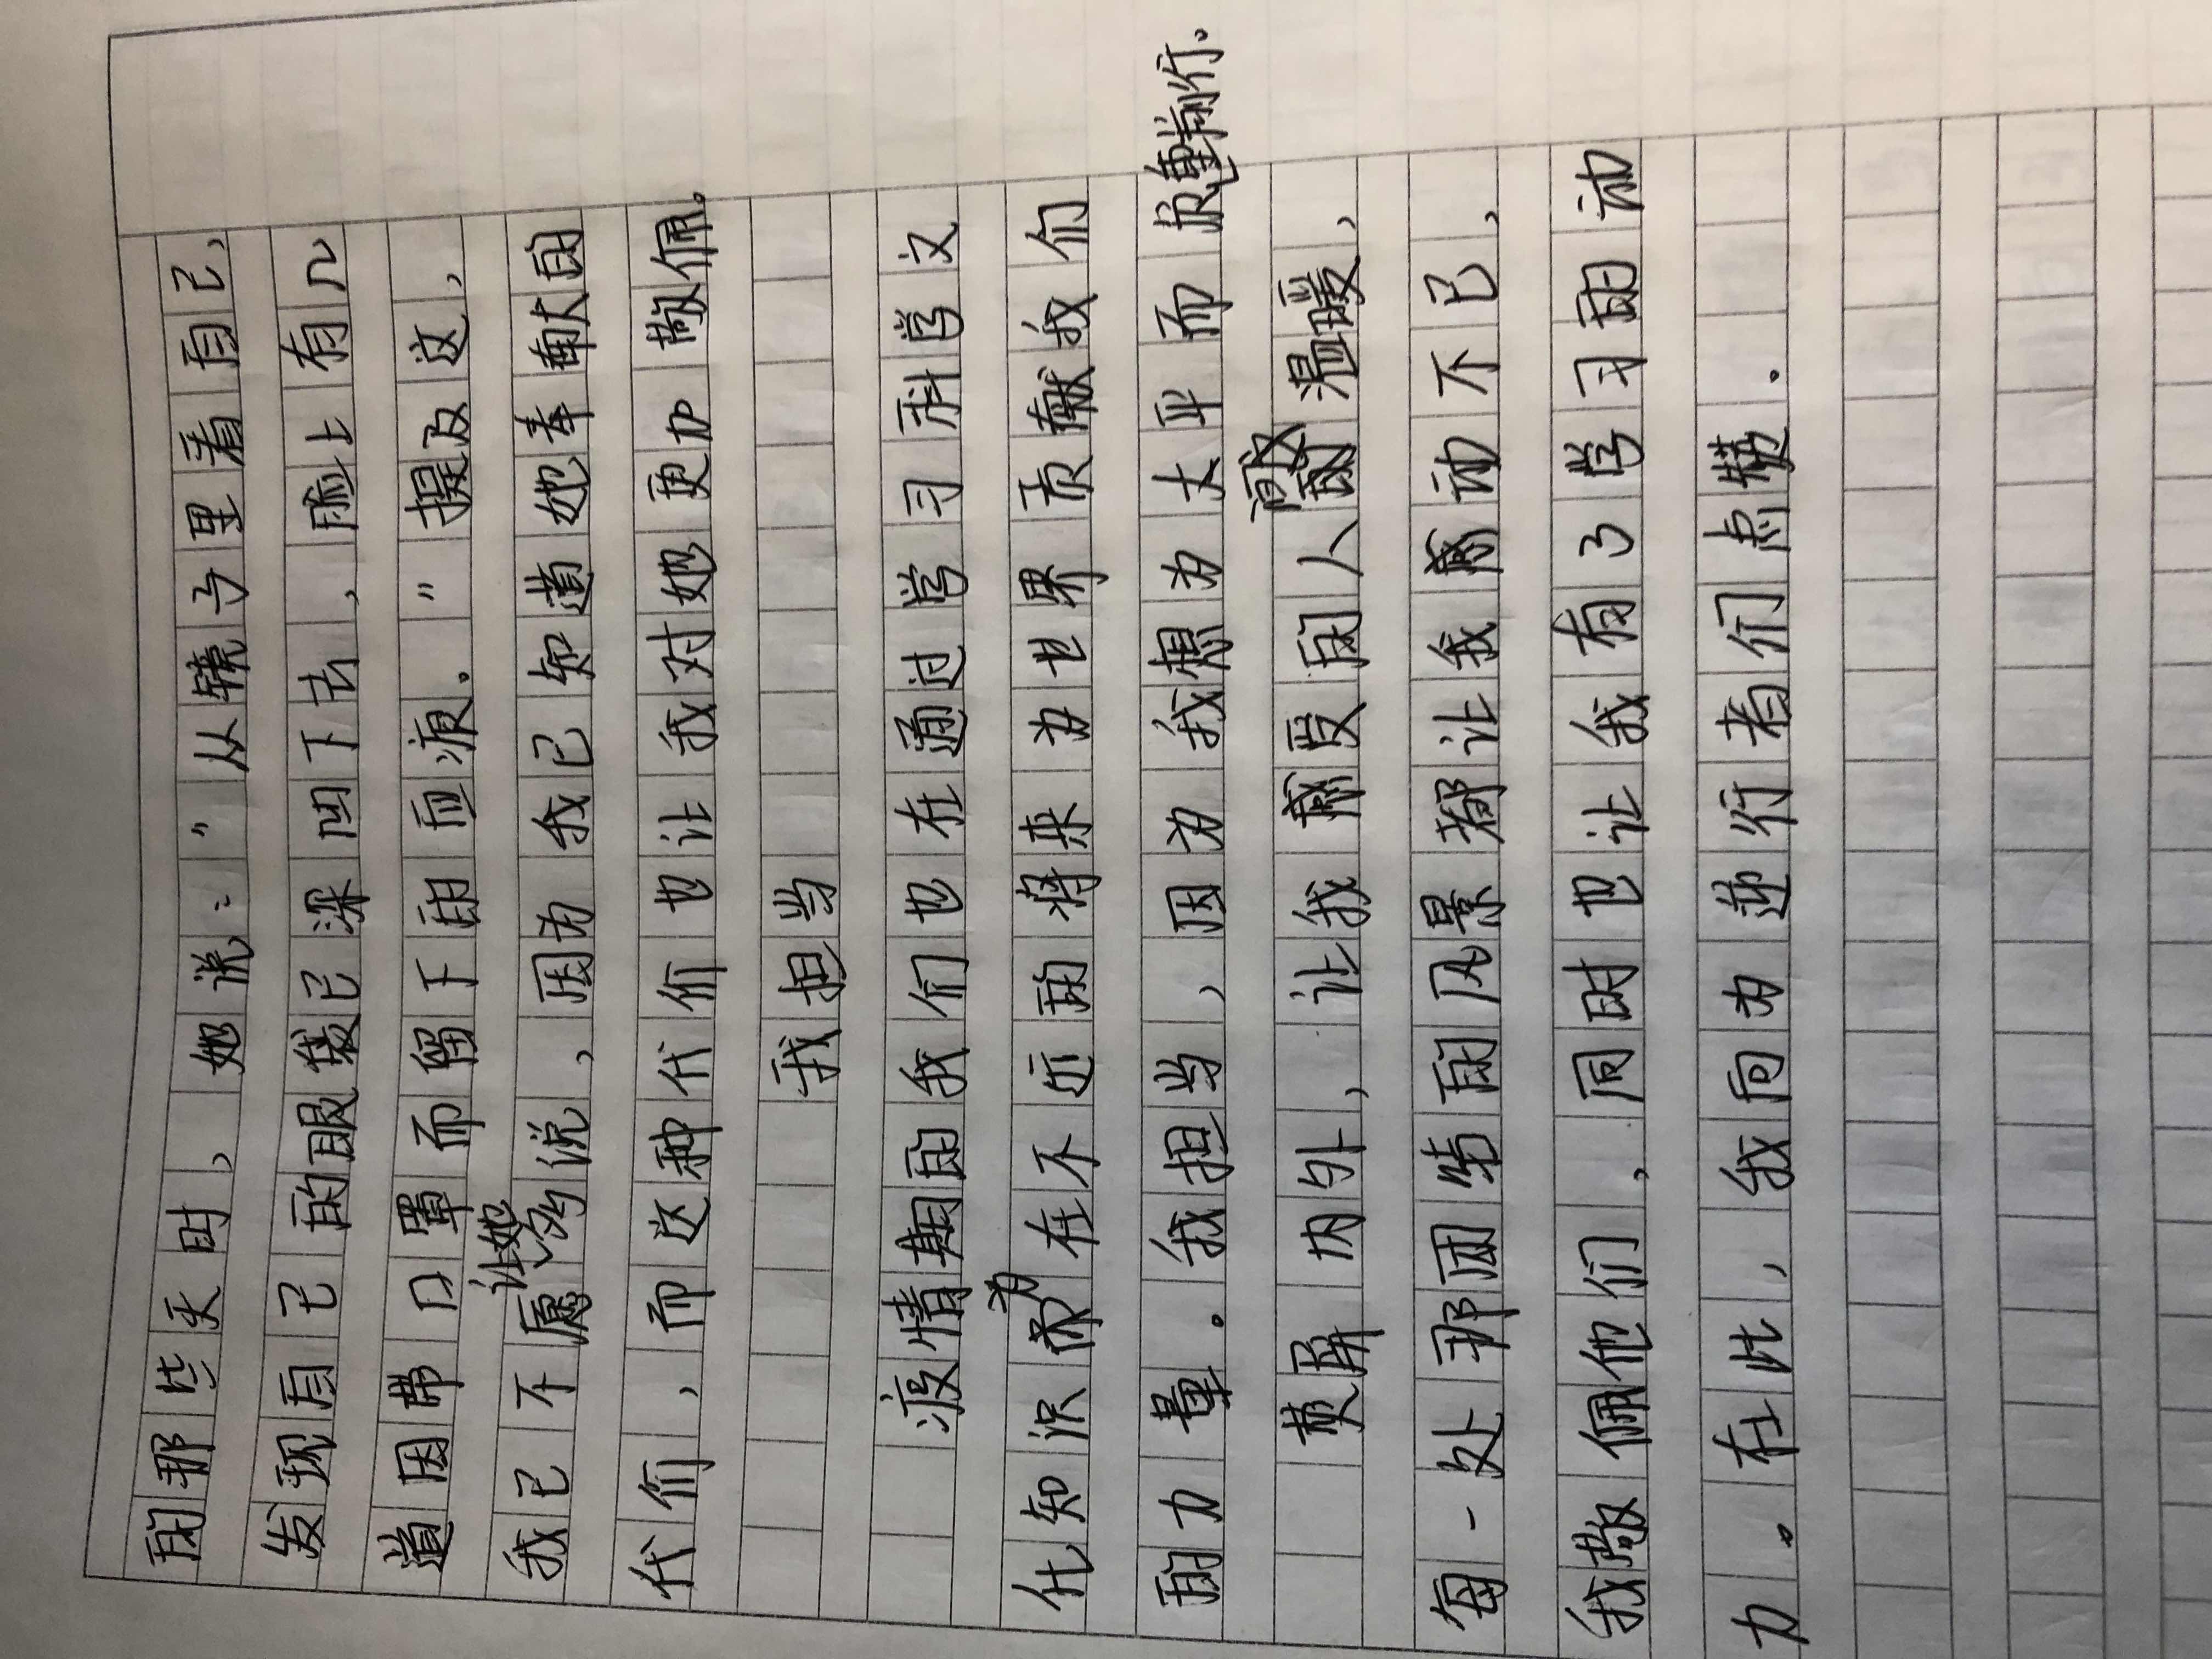 的那些天时，她说：“从镜子里看自己，
发现自己的眼袋已深凹下去，脸上有几
道因带口罩而留下的应痕。”提及这，
我已不愿让她多说，因为我已知道她奉献的
代价，而这种代价也让我对她更加敬佩。
我担当
疫情期的我们也在通过学习科学文
化知识为在不远的将来为世界贡献我们
的力量。我担当，因为我想为太平而负重前行。
荧屏内外，让我感受的人间温暖，
每一处那团结的风景都让我感动不已，
我敬佩他们，同时也让我有了学习的动
力。在此，我向为逆行者们点赞。